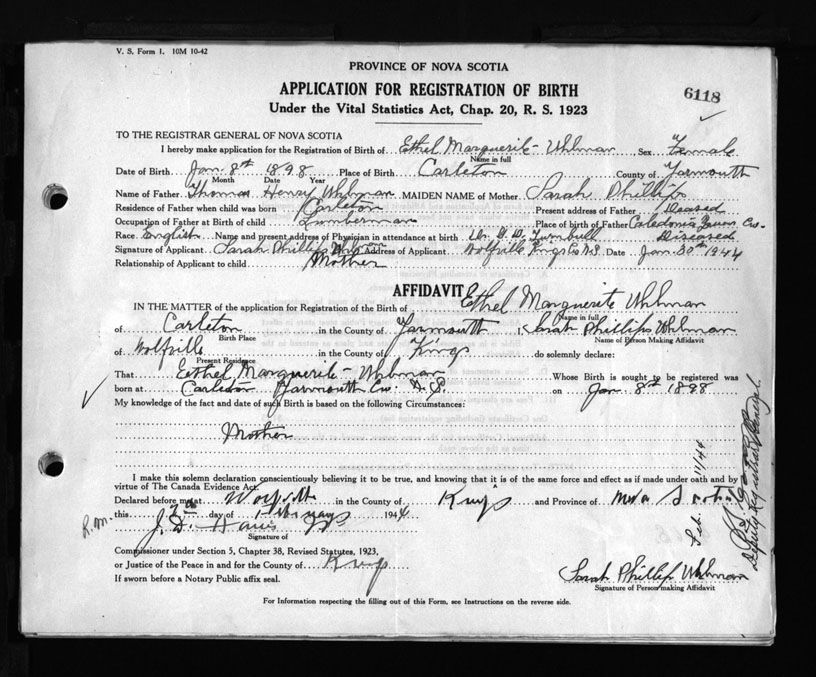 V. S. Form 1. 10M 10-42
PROVINCE OF NOVA SCOTIA
APPLICATION FOR REGISTRATION OF BIRTH
6118
Under the Vital Statistics Act, Chap. 20, R. S. 1923
TO THE REGISTRAR GENERAL OF NOVA SCOTIA
I hereby make application for the Registration of Birth of Ethel Marguerite Uhlman Sex Female
Name in full
Date of Birth Jan. 8th 1898 Place of Birth Carleton County of Yarmouth
Month Date Year
Name of Father Thomas Henry Uhlman MAIDEN NAME of Mother Sarah Phillips
Residence of Father when child was born Carleton Present address of Father Deased
Occupation of Father at Birth of child Lumberman Place of birth of Father Caledonia Co.
Race English Name and present address of Physician in attendance at birth Dr. Turnbull Diseased
Signature of Applicant Sarah Phillips Uhlman Address of Applicant Wolfville Kings Co N.S. Date Jan. 30th 1944
Relationship of Applicant to child Mother
AFFIDAVIT
IN THE MATTER of the application for Registration of the Birth of Ethel Marguerite Uhlman
Name in full
of Carleton in the County of Yarmouth I, Sarah Phillips Uhlman
Birth Place Name of Person Making Affidavit
of Wolfville in the County of Kings do solemnly declare:
Present Residence
That Ethel Marguerite Uhlman Whose Birth is sought to be registered was
born at Carleton Yarmouth Co. N.S. on Jan. 8th 1898
My knowledge of the fact and date of such Birth is based on the following Circumstances:
Mother
I make this solemn declaration conscientiously believing it to be true, and knowing that it is of the same force and effect as if made under oath and by
virtue of The Canada Evidence Act.
Declared before me at Wolfville in the County of Kings and Province of Nova Scotia
this 7th day of February 1944
R.M.
Signature of
Commissioner under Section 5, Chapter 38, Revised Statutes, 1923,
or Justice of the Peace in and for the County of Kings
If sworn before a Notary Public affix seal.
Sarah Phillips Uhlman
Signature of Person making Affidavit
For Information respecting the filling out of this Form, see Instructions on the reverse side.
Feb. 11/44
Deputy Registrar General.